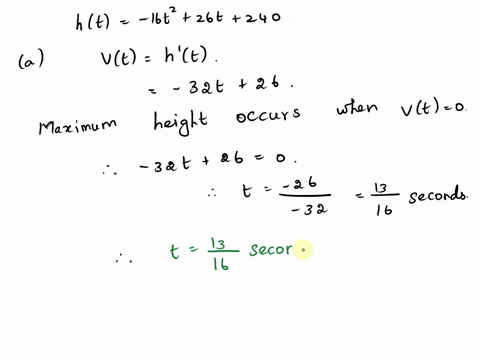 h(t) = -16t² + 26t + 240
(a) V(t) = h'(t).
= -32t + 26.
Maximum height occurs when V(t)=0.
∴ -32t + 26 = 0.
∴ t = -26/-32 = 13/16 seconds.
∴ t = 13/16 secor